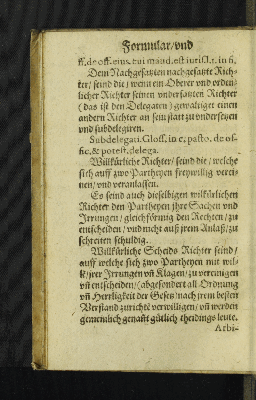 Formular/vnd
ff. de off. eius. cui mand. est iurisd. l. 1. in fi.
Dem Nachgesatzten nachgesatzte Rich-
ter/ seind die/ wenn ein Oberer vnd orden-
licher Richter seinen vndersatzten Richter
(das ist den Delegaten) gewaltiget einen
andern Richter an sein statt zu vndersetzen
vnd subdelegiren.
Subdelegati. Gloss. in c. pasto. de of-
fic. & potest. delega.
Willkürliche Richter/ seind die/ welche
sich auff zwo Partheyen freywillig verei-
nen/ vnd veranlassen.
Es seind auch dieselbigen wilkürlichen
Richter den Partheyen jhre Sachen vnd
Jrrungen/ gleichförmig den Rechten/ zu
entscheiden/ vnd nicht auß jrem Anlaß/ zu
schreiten schuldig.
Willkürliche Scheids Richter seind/
auff welche sich zwo Partheyen mit wil-
k/ jrer Jrrungen vñ Klagen/ zu vereinigen
vñ entscheiden/ (abgesondert all Ordnung
vñ Herrligkeit der Gesetz) nach jrem besten
Verstand zurichtē verwilligen/ vñ werden
gemeinlich genañt gütlich theidings leute.
Arbi-